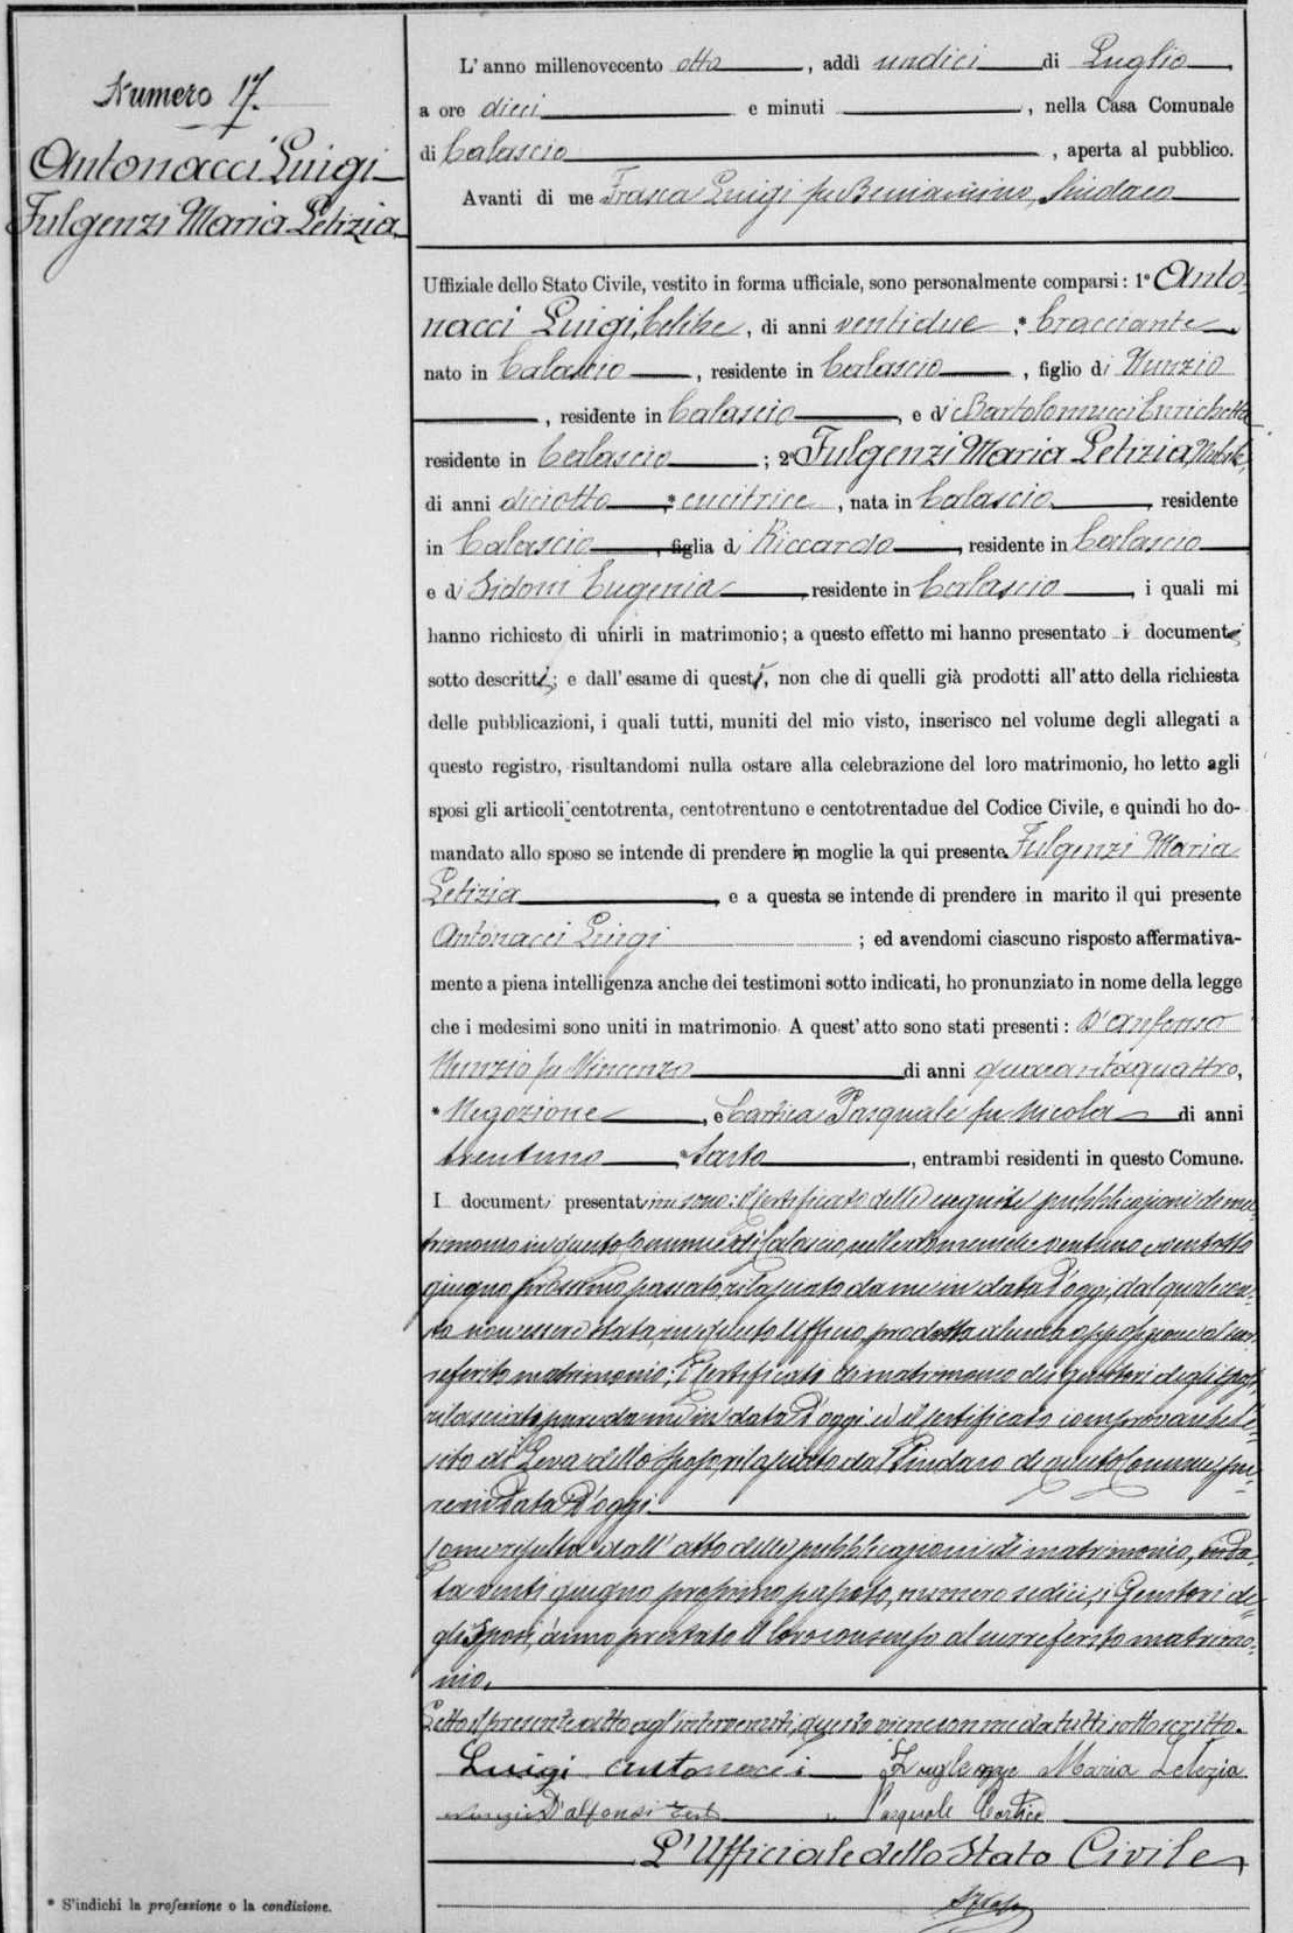 Numero 17.
Antonacci Luigi
Fulgenzi Maria Letizia
* S'indichi la professione o la condizione.
L'anno millenovecento otto, addì undici di Luglio,
a ore dieci e minuti , nella Casa Comunale
di Calascio, aperta al pubblico.
Avanti di me Frasca Luigi fu Beniamino, Sindaco
Uffiziale dello Stato Civile, vestito in forma ufficiale, sono personalmente comparsi: 1° Anto-
nacci Luigi, Celibe, di anni ventidue, * bracciante,
nato in Calascio, residente in Calascio, figlio di Nunzio
, residente in Calascio, e di Bartolomucci Enrichetta
residente in Calascio; 2° Fulgenzi Maria Letizia, Nubile,
di anni diciotto, * cucitrice, nata in Calascio, residente
in Calascio, figlia di Riccardo, residente in Calascio
e di Sidoni Eugenia, residente in Calascio, i quali mi
hanno richiesto di unirli in matrimonio; a questo effetto mi hanno presentato i documenti
sotto descritti; e dall'esame di questi, non che di quelli già prodotti all'atto della richiesta
delle pubblicazioni, i quali tutti, muniti del mio visto, inserisco nel volume degli allegati a
questo registro, risultandomi nulla ostare alla celebrazione del loro matrimonio, ho letto agli
sposi gli articoli centotrenta, centotrentuno e centotrentadue del Codice Civile, e quindi ho do-
mandato allo sposo se intende di prendere in moglie la qui presente Fulgenzi Maria
Letizia, e a questa se intende di prendere in marito il qui presente
Antonacci Luigi; ed avendomi ciascuno risposto affermativa-
mente a piena intelligenza anche dei testimoni sotto indicati, ho pronunziato in nome della legge
che i medesimi sono uniti in matrimonio. A quest'atto sono stati presenti: D'Anfonso
Nunzio fu Vincenzo di anni quarantaquattro,
* Negozione, e Cartica Pasquale fu Nicola di anni
trentuno, * Sarto, entrambi residenti in questo Comune.
I documenti presentatimi sono: il Certificato delle eseguite pubblicazioni di ma-
trimonio in questo Comune di Calascio, nelle domeniche ventuno e ventotto
giugno prossimo passato, rilasciato da me in data d'oggi, dal quale con-
sta non essere stata, in questo Ufficio, prodotta alcuna opposizione al sur-
referito matrimonio; i Certificati di matrimonio dei genitori degli sposi,
rilasciati pure da me in data d'oggi ed il Certificato comprovante l'e-
sito di Leva dello sposo, rilasciato dal Sindaco di questo Comune, pu-
re in data d'oggi.
Come risulta dall'atto delle pubblicazioni di matrimonio, in da-
ta venti giugno prossimo passato, numero sedici, i Genitori de-
gli Sposi, ànno prestato il loro consenso al surreferito matrimo-
nio.
Letto il presente atto agl'intervenuti, questo viene con me da tutti sottoscritto.
Luigi Antonacci Maria Letizia
Nunzio D'alfonsi Test Pasquale Cartica
L'Ufficiale dello Stato Civile